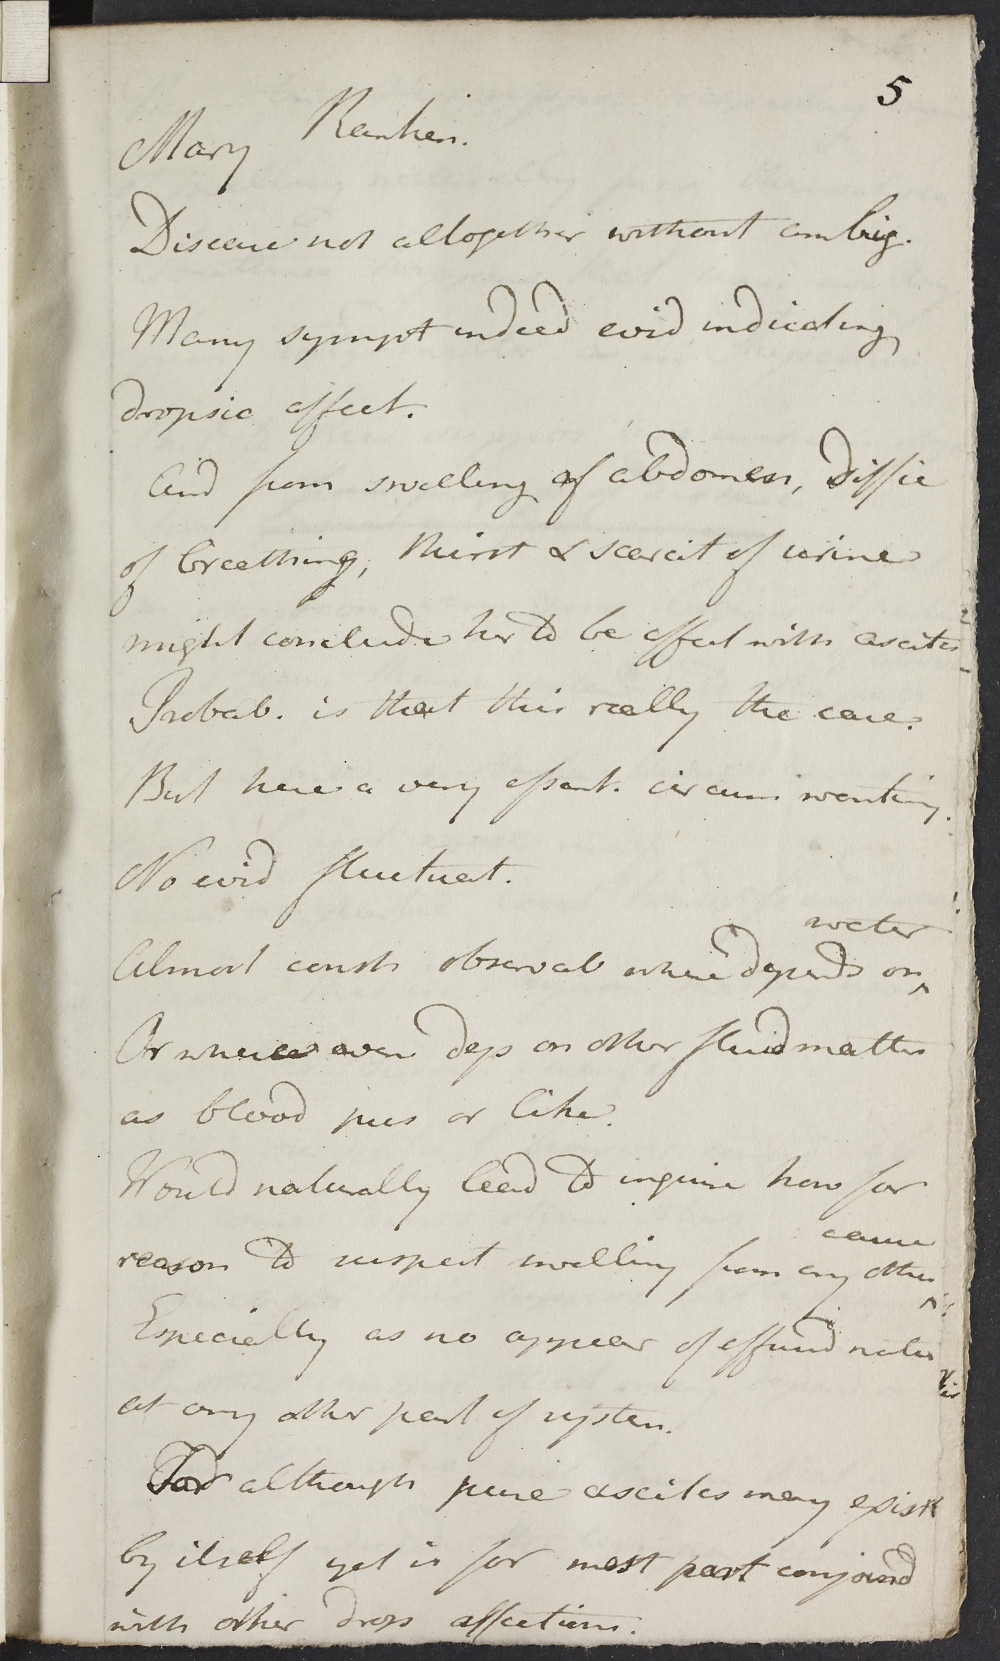 5
Mary Rankin.
Disease not altogether without ambig.
Many sympt indeed evid indicating
dropsic affect.
And from swelling of abdomen, Diffic
of breathing, thirst & scarcit of urine
might conclude her to be affect with ascites
Probab. is that this really the case.
But here a very essent. circum wanting.
No evid fluctuat.
water
Almost const observab where depends on ^
Or where even dep on other fluid matter
as blood pus or like.
Would naturally lead to inquire how far
cause
reason to suspect swelling from any other ^
Especially as no appear of effused water
at any other part of system.
For although pure ascites may exist
by itself yet is for most part conjoined
with other drops affections.